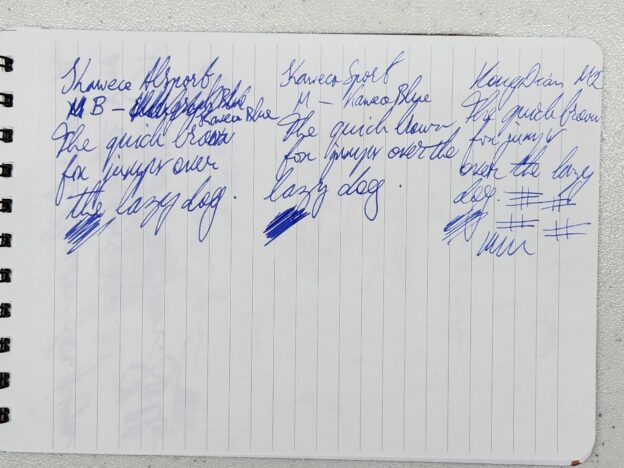 Kaweco AlSport
B – Kaweco Blue
The quick brown
fox jumps over
the lazy dog.
Kaweco Sport
M – Kaweco Blue
The quick brown
fox jumps over the
lazy dog.
HongDian M2
The quick brown
fox jumps
over the lazy
dog. # #
# #